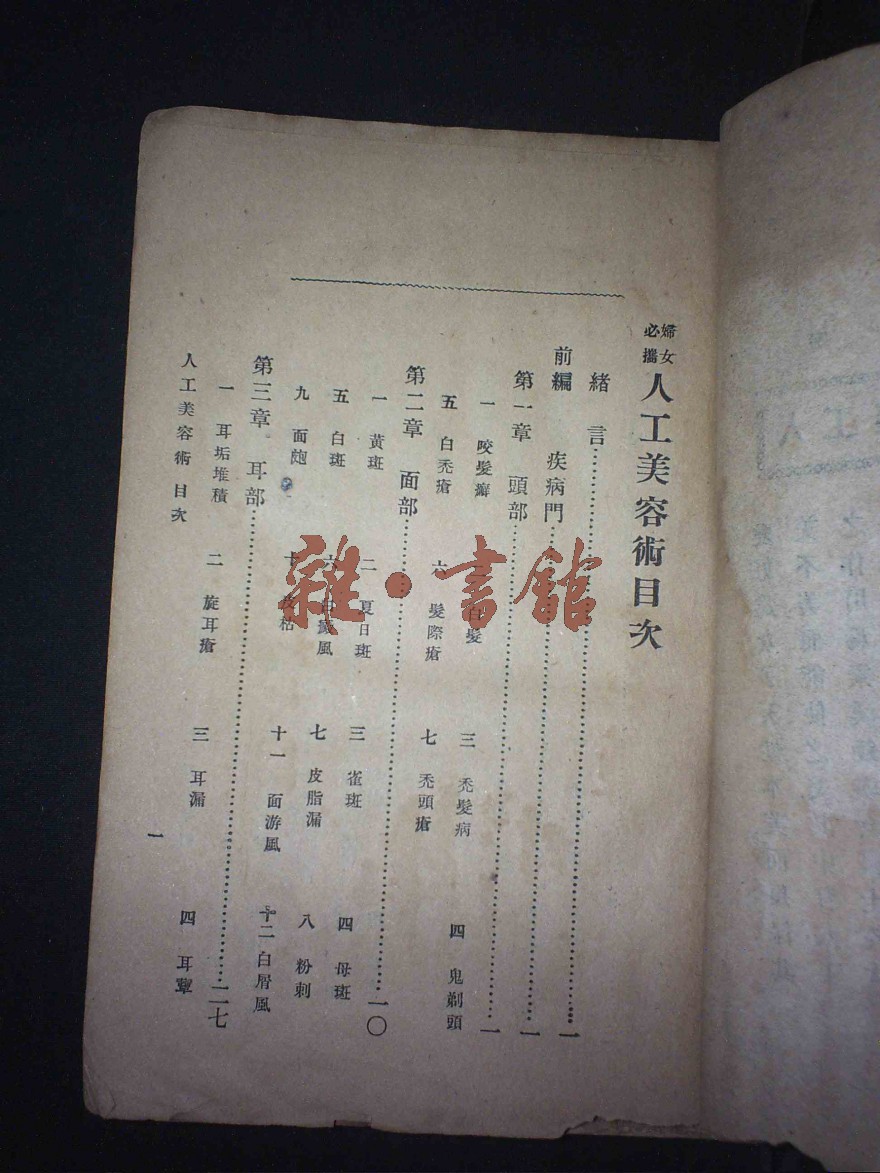 婦女必攜 人工美容術目次
緒言……一
前編 疾病門……一
第一章 頭部……一
一 咬髮癬 白髮 三 禿髮病 四 鬼剃頭
五 白禿瘡 六 髮際瘡 七 禿頭瘡
第二章 面部……一〇
一 黃斑 二 夏日斑 三 雀斑 四 母斑
五 白斑 六 白癜風 七 皮脂漏 八 粉刺
九 面皰 十 皮枯 十一 面游風 十二 白屑風
第三章 耳部……二七
一 耳垢堆積 二 旋耳瘡 三 耳漏 四 耳蕈
人工美容術 目次 一
雜·書館